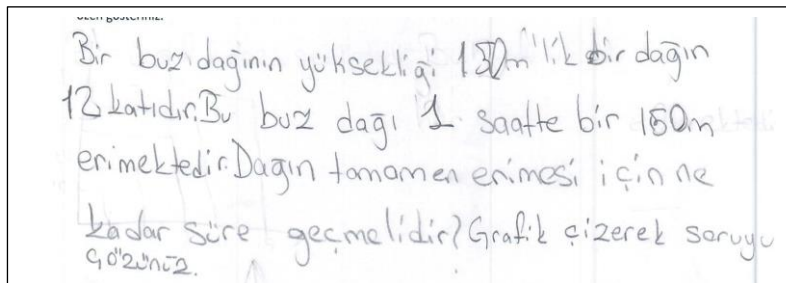 özen gösteriniz.
Bir buz dağının yüksekliği 150m'lik bir dağın
12 katıdır. Bu buz dağı 1 saatte bir 150m
erimektedir. Dağın tamamen erimesi için ne
kadar süre geçmelidir? Grafik çizerek soruyu
çözünüz.